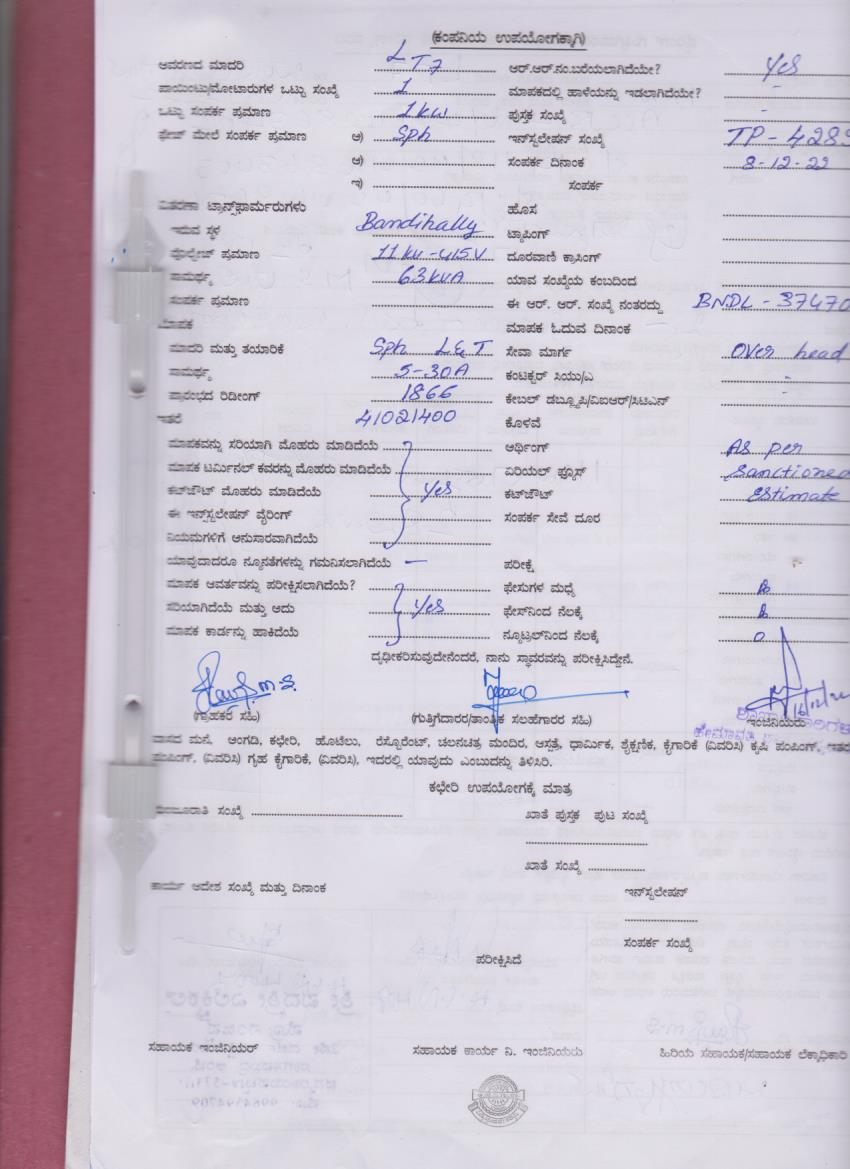 (ಕಂಪನಿಯ ಉಪಯೋಗಕ್ಕಾಗಿ)
ಆವರಣದ ಮಾದರಿ LT7 ಆರ್.ಆರ್.ನಂ.ಬರೆಯಲಾಗಿದೆಯೇ? Yes
ಪಾಯಿಂಟು/ಮೋಟಾರುಗಳ ಒಟ್ಟು ಸಂಖ್ಯೆ 1 ಮಾಪಕದಲ್ಲಿ ಹಾಳೆಯನ್ನು ಇಡಲಾಗಿದೆಯೇ? -
ಒಟ್ಟು ಸಂಪರ್ಕ ಪ್ರಮಾಣ 1kw ಪುಸ್ತಕ ಸಂಖ್ಯೆ -
ಫೇಜ್ ಮೇಲೆ ಸಂಪರ್ಕ ಪ್ರಮಾಣ ಅ) Sph ಇನ್‌ಸ್ಟಲೇಷನ್ ಸಂಖ್ಯೆ TP-4289
ಆ) ಸಂಪರ್ಕ ದಿನಾಂಕ 8-12-22
ಇ) ಸಂಪರ್ಕ
ವಿತರಣಾ ಟ್ರಾನ್ಸ್‌ಫಾರ್ಮರುಗಳು ಹೊಸ
ಇರುವ ಸ್ಥಳ Bandihally ಟ್ಯಾಪಿಂಗ್
ವೋಲ್ಟೇಜ್ ಪ್ರಮಾಣ 11kv-415V ದೂರವಾಣಿ ಕ್ರಾಸಿಂಗ್
ಸಾಮರ್ಥ್ಯ 63kVA ಯಾವ ಸಂಖ್ಯೆಯ ಕಂಬದಿಂದ
ಸಂಪರ್ಕ ಪ್ರಮಾಣ ಈ ಆರ್. ಆರ್. ಸಂಖ್ಯೆ ನಂತರದ್ದು BNDL-37470
ಮಾಪಕ ಮಾಪಕ ಓದುವ ದಿನಾಂಕ
ಮಾದರಿ ಮತ್ತು ತಯಾರಿಕೆ Sph L&T ಸೇವಾ ಮಾರ್ಗ Over head
ಸಾಮರ್ಥ್ಯ 5-30A ಕಂಟಕ್ಟರ್ ಸಿಯು/ಎ -
ಪ್ರಾರಂಭದ ರಿಡೀಂಗ್ 1866 ಕೇಬಲ್ ಡಬ್ಲ್ಯೂಪಿ/ವಿಐಆರ್/ಸಿಟಿಎಸ್ -
ಇತರೆ 41021400 ಕೊಳವೆ
ಮಾಪಕವನ್ನು ಸರಿಯಾಗಿ ಮೊಹರು ಮಾಡಿದೆಯೆ ಆರ್ಥಿಂಗ್ As per
ಮಾಪಕ ಟರ್ಮಿನಲ್ ಕವರನ್ನು ಮೊಹರು ಮಾಡಿದೆಯೆ ಏರಿಯಲ್ ಫ್ಯೂಸ್ Sanctioned
ಕಟ್‌ಔಟ್ ಮೊಹರು ಮಾಡಿದೆಯೆ Yes ಕಟ್‌ಔಟ್ Estimate
ಈ ಇನ್‌ಸ್ಟಲೇಷನ್ ವೈರಿಂಗ್ ಸಂಪರ್ಕ ಸೇವೆ ದೂರ
ನಿಯಮಗಳಿಗೆ ಅನುಸಾರವಾಗಿದೆಯೆ
ಯಾವುದಾದರೂ ನ್ಯೂನತೆಗಳನ್ನು ಗಮನಿಸಲಾಗಿದೆಯೆ — ಪರೀಕ್ಷೆ
ಮಾಪಕ ಆವರ್ತವನ್ನು ಪರೀಕ್ಷಿಸಲಾಗಿದೆಯೆ? ಫೇಸುಗಳ ಮಧ್ಯೆ
ಸರಿಯಾಗಿದೆಯೆ ಮತ್ತು ಅದು Yes ಫೇಸ್‌ನಿಂದ ನೆಲಕ್ಕೆ
ಮಾಪಕ ಕಾರ್ಡನ್ನು ಹಾಕಿದೆಯೆ ನ್ಯೂಟ್ರಲ್‌ನಿಂದ ನೆಲಕ್ಕೆ 0
ದೃಢೀಕರಿಸುವುದೇನೆಂದರೆ, ನಾನು ಸ್ಥಾವರವನ್ನು ಪರೀಕ್ಷಿಸಿದ್ದೇನೆ.
(ಗ್ರಾಹಕರ ಸಹಿ) (ಗುತ್ತಿಗೆದಾರರ/ತಾಂತ್ರಿಕ ಸಲಹೆಗಾರರ ಸಹಿ) ಇಂಜಿನಿಯರು
ವಾಸದ ಮನೆ, ಅಂಗಡಿ, ಕಛೇರಿ, ಹೊಟೆಲು, ರೆಸ್ಟೋರೆಂಟ್, ಚಲನಚಿತ್ರ ಮಂದಿರ, ಆಸ್ಪತ್ರೆ, ಧಾರ್ಮಿಕ, ಶೈಕ್ಷಣಿಕ, ಕೈಗಾರಿಕೆ (ವಿವರಿಸಿ) ಕೃಷಿ ಪಂಪಿಂಗ್, ಇತರ
ಪಂಪಿಂಗ್, (ವಿವರಿಸಿ) ಗೃಹ ಕೈಗಾರಿಕೆ, (ವಿವರಿಸಿ), ಇದರಲ್ಲಿ ಯಾವುದು ಎಂಬುದನ್ನು ತಿಳಿಸಿರಿ.
ಕಛೇರಿ ಉಪಯೋಗಕ್ಕೆ ಮಾತ್ರ
ಮಂಜೂರಾತಿ ಸಂಖ್ಯೆ ಖಾತೆ ಪುಸ್ತಕ ಪುಟ ಸಂಖ್ಯೆ
ಖಾತೆ ಸಂಖ್ಯೆ
ಕಾರ್ಯ ಆದೇಶ ಸಂಖ್ಯೆ ಮತ್ತು ದಿನಾಂಕ ಇನ್‌ಸ್ಟಲೇಷನ್
ಸಂಪರ್ಕ ಸಂಖ್ಯೆ
ಪರೀಕ್ಷಿಸಿದೆ
ಸಹಾಯಕ ಇಂಜಿನಿಯರ್ ಸಹಾಯಕ ಕಾರ್ಯ ನಿ. ಇಂಜಿನಿಯರು ಹಿರಿಯ ಸಹಾಯಕ/ಸಹಾಯಕ ಲೆಕ್ಕಾಧಿಕಾರಿ